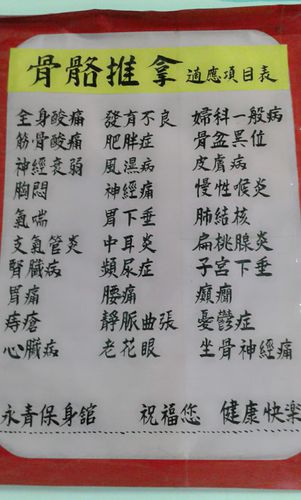 骨骼推拿 適應項目表
全身酸痛 發育不良 婦科一般病
筋骨酸痛 肥胖症 骨盆異位
神經衰弱 風濕病 皮膚病
胸悶 神經痛 慢性喉炎
氣喘 胃下垂 肺結核
支氣管炎 中耳炎 扁桃腺炎
腎臟病 頻尿症 子宮下垂
胃痛 腰痛 癲癇
痔瘡 靜脈曲張 憂鬱症
心臟病 老花眼 坐骨神經痛
永青保身舘 祝福您 健康快樂